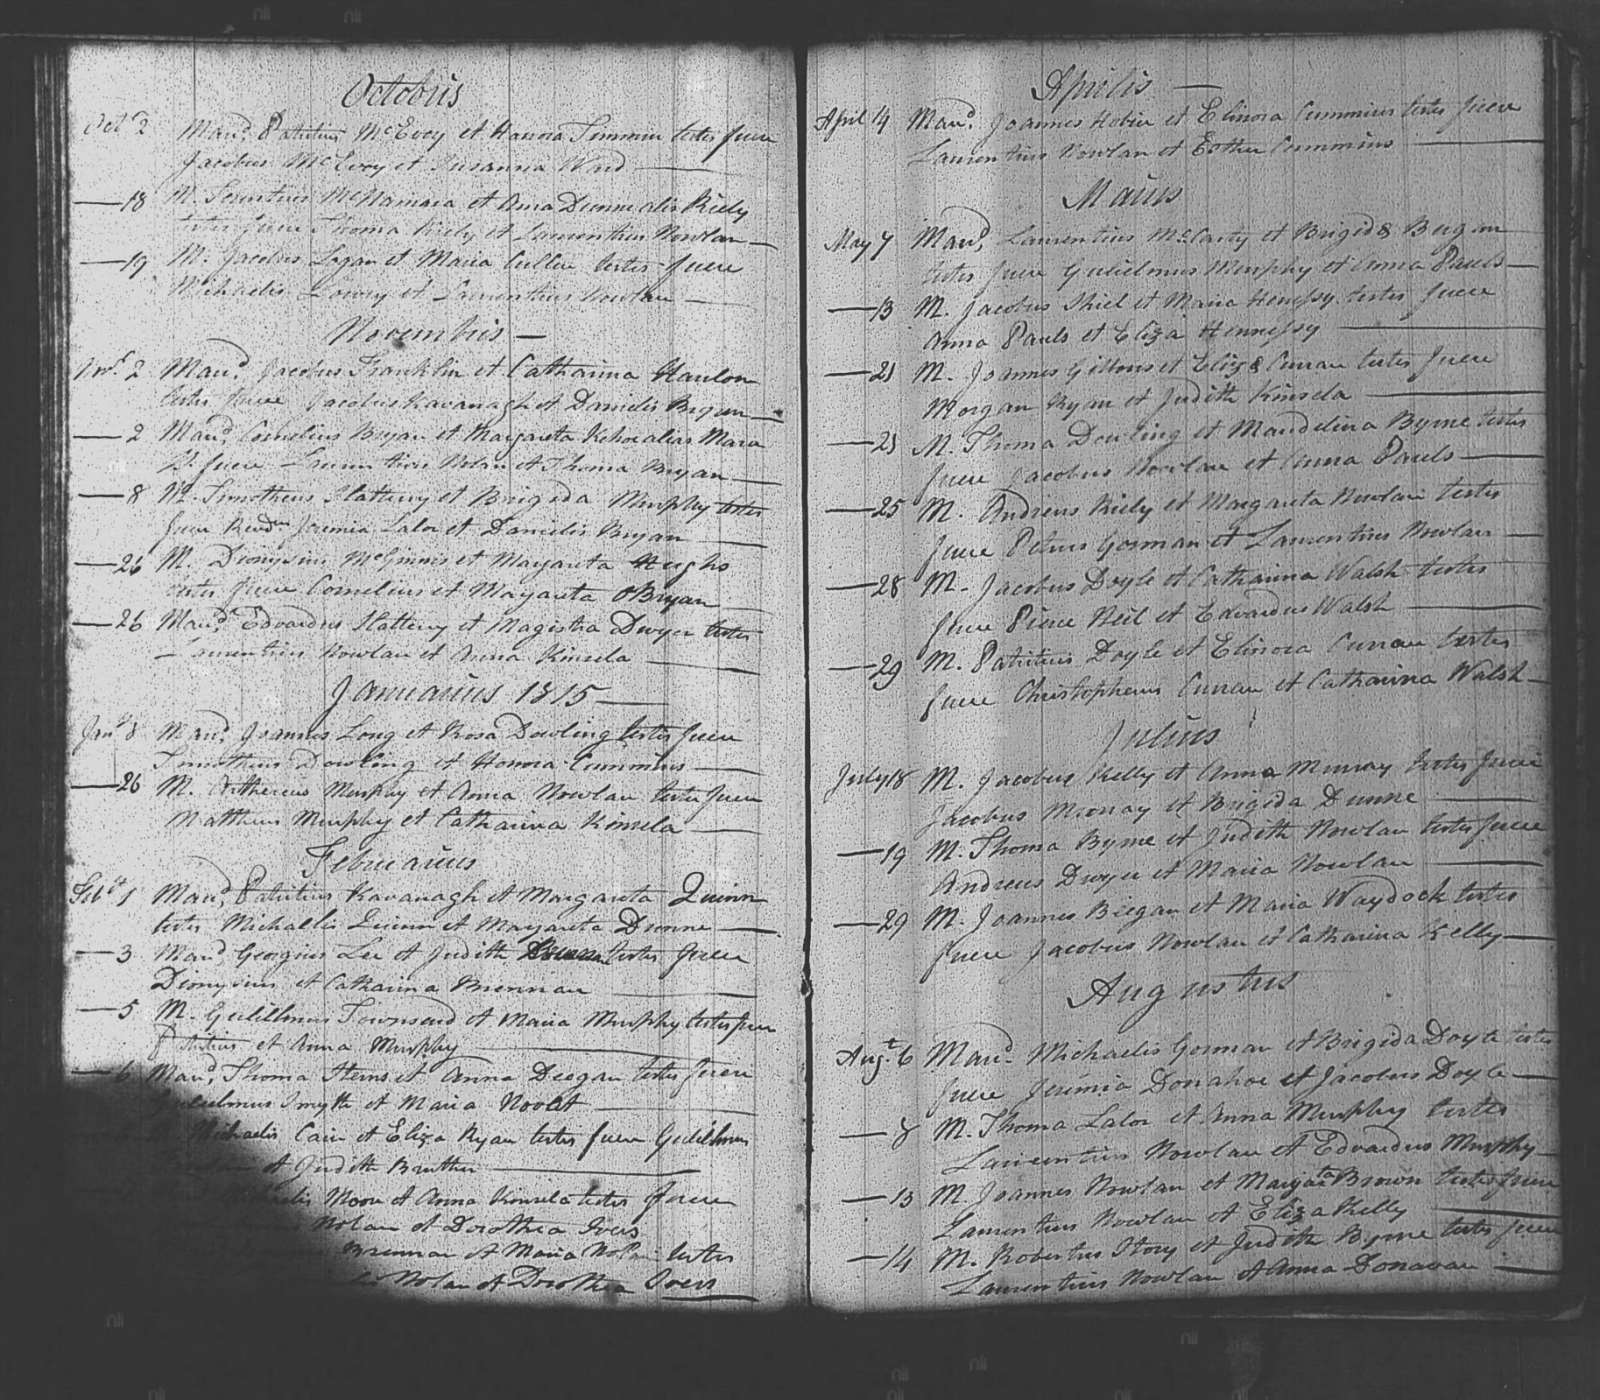 Octobris
Oct 2 Maud. Patritius McEvoy et Hanora Timmin testes fuere
Jacobus McEvoy et Susanna Ward
18 M. McNamara et Anna Dunne alis Kiely
testes fuere Thoma Kiely et Laurenthius Nowlan
19 M. Jacobus Logan et Maria Cullin testes fuere
Michaelis Lowry et Laurenthius Nowlan
Novembris
Nov. 2 Maud. Jacobus Franklin et Catharina Hanlon
testes fuere Jacobus Kavanagh et Danielis Bryan
2 Maud. Cornelius Bryan et Margareta Kehoe alias Mara
fuere Laurenthius Nolan et Thoma Bryan
8 M. Timotheus Slattery et Brigida Murphy testes
fuere Revd. Jeremia Lalor et Danielis Bryan
26 M. Dionysius McGinnis et Margareta Hughs
testes fuere Cornelius et Margareta OBryan
26 Maud. Edvardus Slattery et Magistra Dwyer testes
Laurentius Nowlan et Anna Kinsela
Januarius 1815
Jany 8 Maud. Joannes Long et Rosa Dowling testes fuere
Timotheus Dowling et Honora Cummins
26 M. Murphy et Anna Nowlan testes fuere
Mattheus Murphy et Catharina Kinsela
Februarius
Feb 1 Maud. Patritius Kavanagh et Margareta Quinn
testes Michaelis Quinn et Margareta Dunne
3 Maud. Georgius Lee et Judith testes fuere
Dionysius et Catharina Brennan
5 M. Gulielmus Townsend et Maria Murphy testes fuere
Patritius et Anna Murphy
6 Maud. Thoma Sterns et Anna Deegan testes fuere
Gulielmus Smyth et Maria
M. Michaelis Cain et Eliza Ryan testes fuere Gulielmus
et Judith
Moore et Anna Kinsela testes fuere
Nolan et Dorothea Ivers
Brennan et Maria Nolan testes
Nolan et Dorothea Ivers
Aprilis
April 14 Maud. Joannes Hobin et Elinora Cummins testes fuere
Laurentius Nowlan et Esther Cummins
Maius
May 7 Maud. Laurentius McCarty et Brigida Bergin
testes fuere Gulielmus Murphy et Anna Pauls
13 M. Jacobus Shiel et Maria Henessy testes fuere
Anna Pauls et Eliza Hennessy
21 M. Joannes Gittons et Eliza Curran testes fuere
Morgan Ryan et Judith Kinsela
21 M. Thoma Dowling et Maudelina Byrne testes
fuere Jacobus Nowlan et Anna Pauls
25 M. Andreus Kiely et Margareta Nowlan testes
fuere Petrus Gorman et Laurentius Nowlan
28 M. Jacobus Doyle et Catharina Walsh testes
fuere Pierce Neil et Edvardus Walsh
29 M. Patritius Doyle et Elinora Curran testes
fuere Christopherus Curran et Catharina Walsh
Julius
July 18 M. Jacobus Kelly et Anna Murray testes fuere
Jacobus Murray et Brigida Dunne
19 M. Thoma Byrne et Judith Nowlan testes fuere
Andreus Dwyer et Maria Nowlan
29 M. Joannes Biegan et Maria Waydock testes
fuere Jacobus Nowlan et Catharina Kelly
Augustus
Augt. 6 Maud. Michaelis Gorman et Brigida Doyle testes
fuere Jeremia Donahoe et Jacobus Doyle
8 M. Thoma Lalor et Anna Murphy testes
Laurentius Nowlan et Edvardus Murphy
13 M. Joannes Nowlan et Margta Brown testes fuere
Laurentius Nowlan et Eliza Kelly
14 M. Robertus Story et Judith Byrne testes fuere
Laurentius Nowlan et Anna Donavan